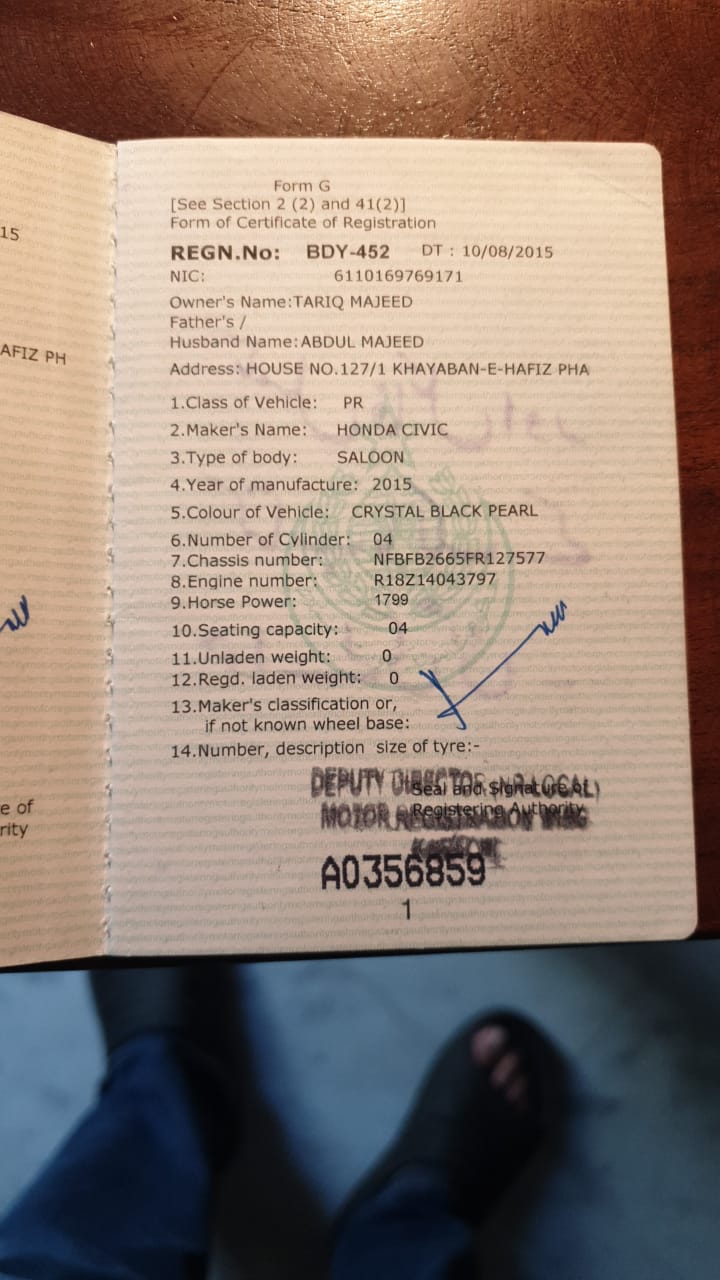 15
AFIZ PH
e of
rity
Form G
[See Section 2 (2) and 41(2)]
Form of Certificate of Registration
REGN.No: BDY-452 DT : 10/08/2015
NIC: 6110169769171
Owner's Name:TARIQ MAJEED
Father's /
Husband Name:ABDUL MAJEED
Address: HOUSE NO.127/1 KHAYABAN-E-HAFIZ PHA
1.Class of Vehicle: PR
2.Maker's Name: HONDA CIVIC
3.Type of body: SALOON
4.Year of manufacture: 2015
5.Colour of Vehicle: CRYSTAL BLACK PEARL
6.Number of Cylinder: 04
7.Chassis number: NFBFB2665FR127577
8.Engine number: R18Z14043797
9.Horse Power: 1799
10.Seating capacity: 04
11.Unladen weight: 0
12.Regd. laden weight: 0
13.Maker's classification or,
if not known wheel base:
14.Number, description size of tyre:-
DEPUTY DIRECTOR
Seal and Signature
MOTOR REGISTRATION WING
Registering Authority
A0356859
1